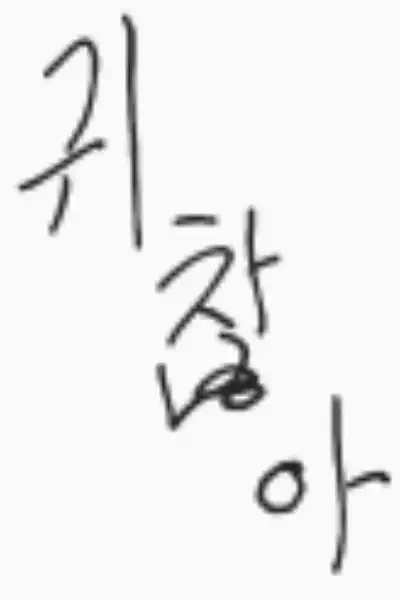 귀찮아